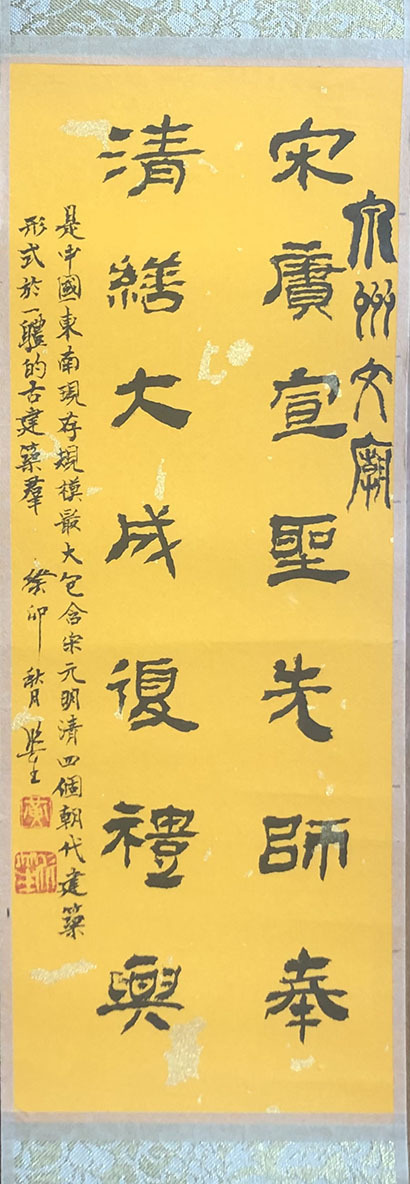 泉州文廟
宋賡宣聖先師奉
清繕大成復禮興
是中國東南現存規模最大包含宋元明清四個朝代建築
形式於一體的古建築群 癸卯 秋月